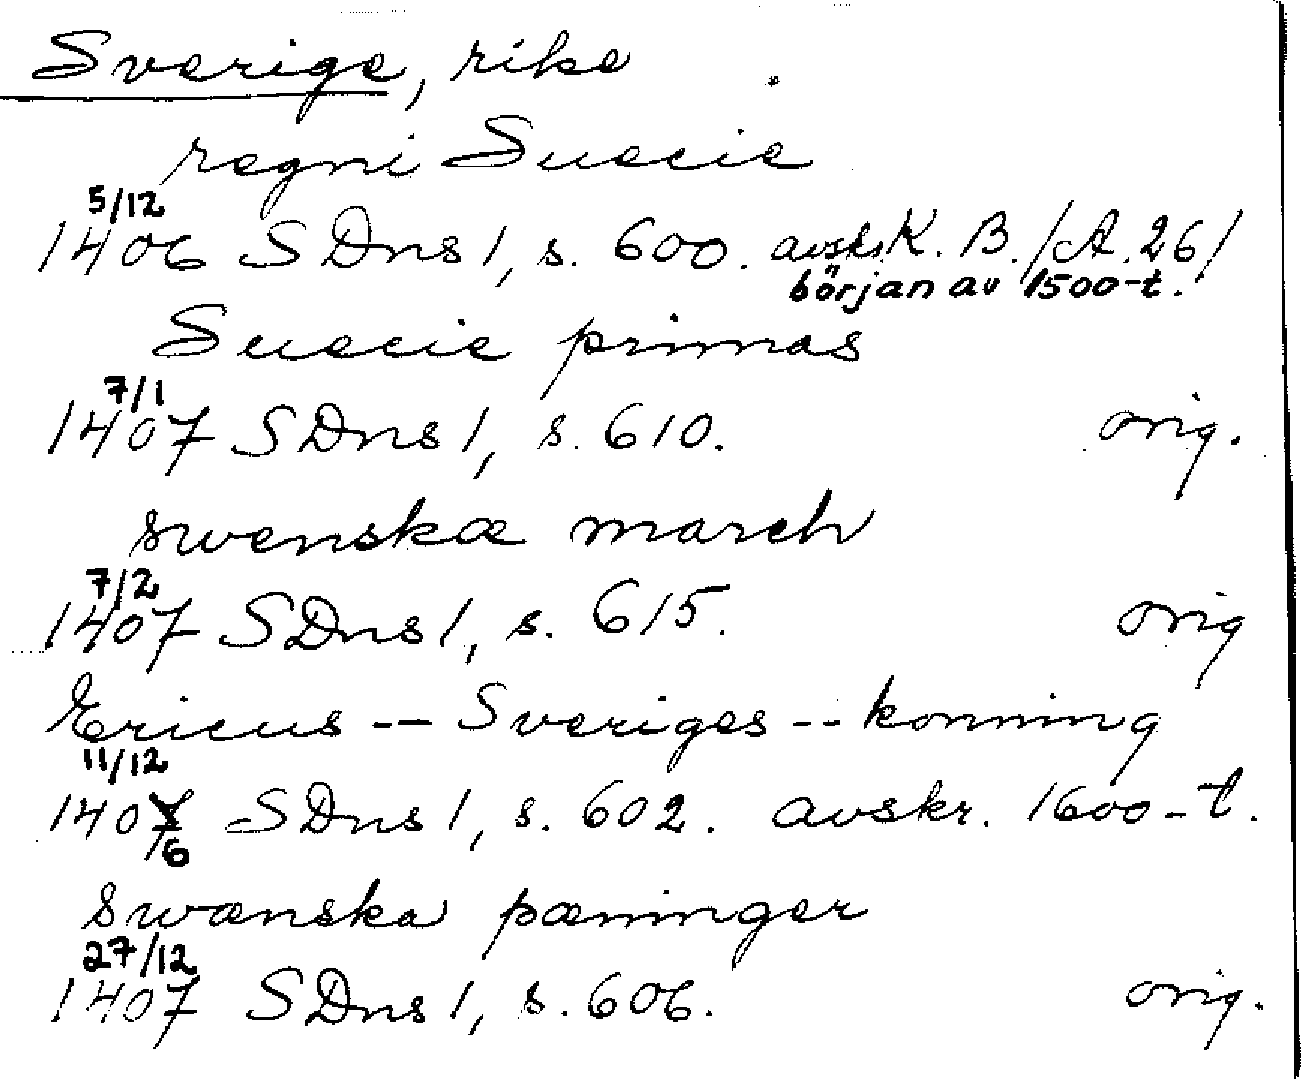 Sverige, rike
regni Suecie
5/12
1406 SDns 1, s. 600. avskr. K. B. /A. 26/
början av 1500-t.
Suecie primas
7/1
1407 SDns 1, s. 610. orig.
swenskæ march
7/2
1407 SDns 1, s. 615. orig
Ericus -- Sveriges -- konning
11/12
1407 SDns 1, s. 602. avskr. 1600-t.
6
Swænska pæninger
27/12
1407 SDns 1, s. 606. orig.